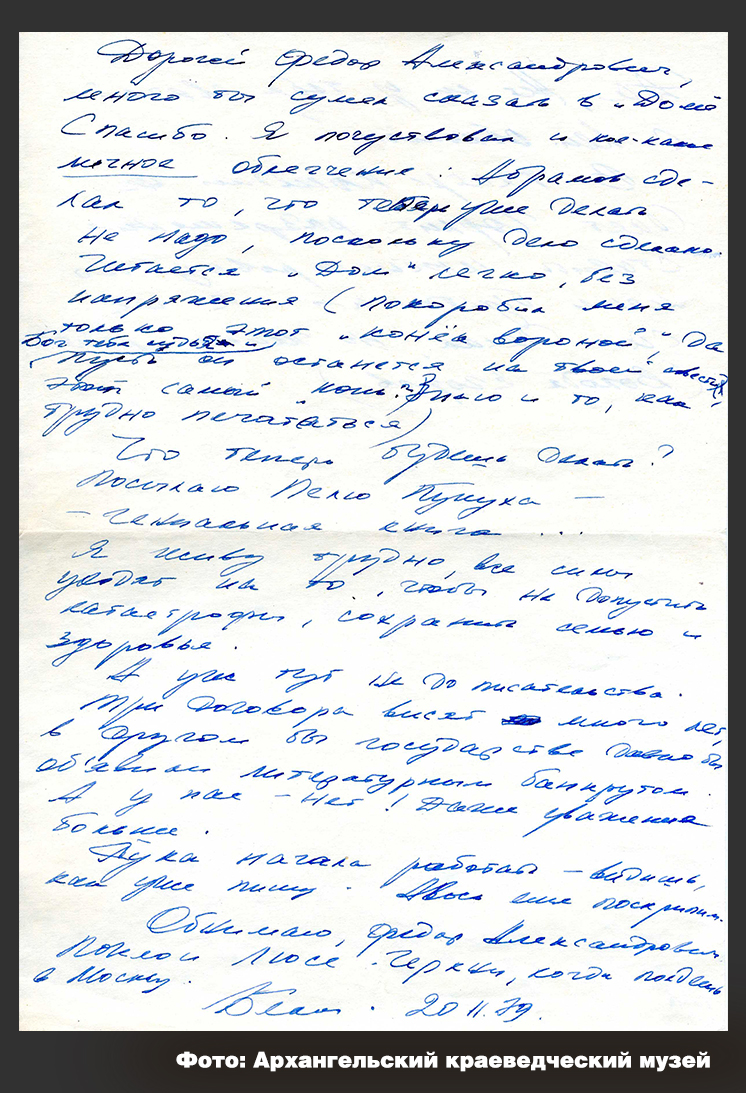 Дорогой Федор Александрович,
много ты сумел сказать в „Доме"
Спасибо. Я почуствовал и кое-какое
личное облегчение: Абрамов сде-
лал то, что теперь уже делать
не надо, поскольку дело сделано.
Читается „Дом" легко, без
напряжения (покоробил меня
только этот „конёк вороной", да
Бог тебе судья
пусть он останется на твоей совести,
этот самый „конь". Знаю и то, как
трудно печататься)
Что теперь будешь делать?
Посылаю Пелю Пунуха —
— гениальная книга...
Я живу трудно, все силы
уходят на то, чтобы не допустить
катастрофы, сохранить семью и
здоровье.
А уж тут не до писательства.
Три договора висят много лет,
в другом бы государстве давно бы
объявили литературным банкротом.
А у нас – нет! Даже уважения
больше.
Рука начала работать – видишь,
как уже пишу. Авось еще поскрипим.
Обнимаю, Федор Александрович.
Поклон Люсе. Черкни, когда поедешь
в Москву.
Белов. 20 11.79.
Фото: Архангельский краеведческий музей